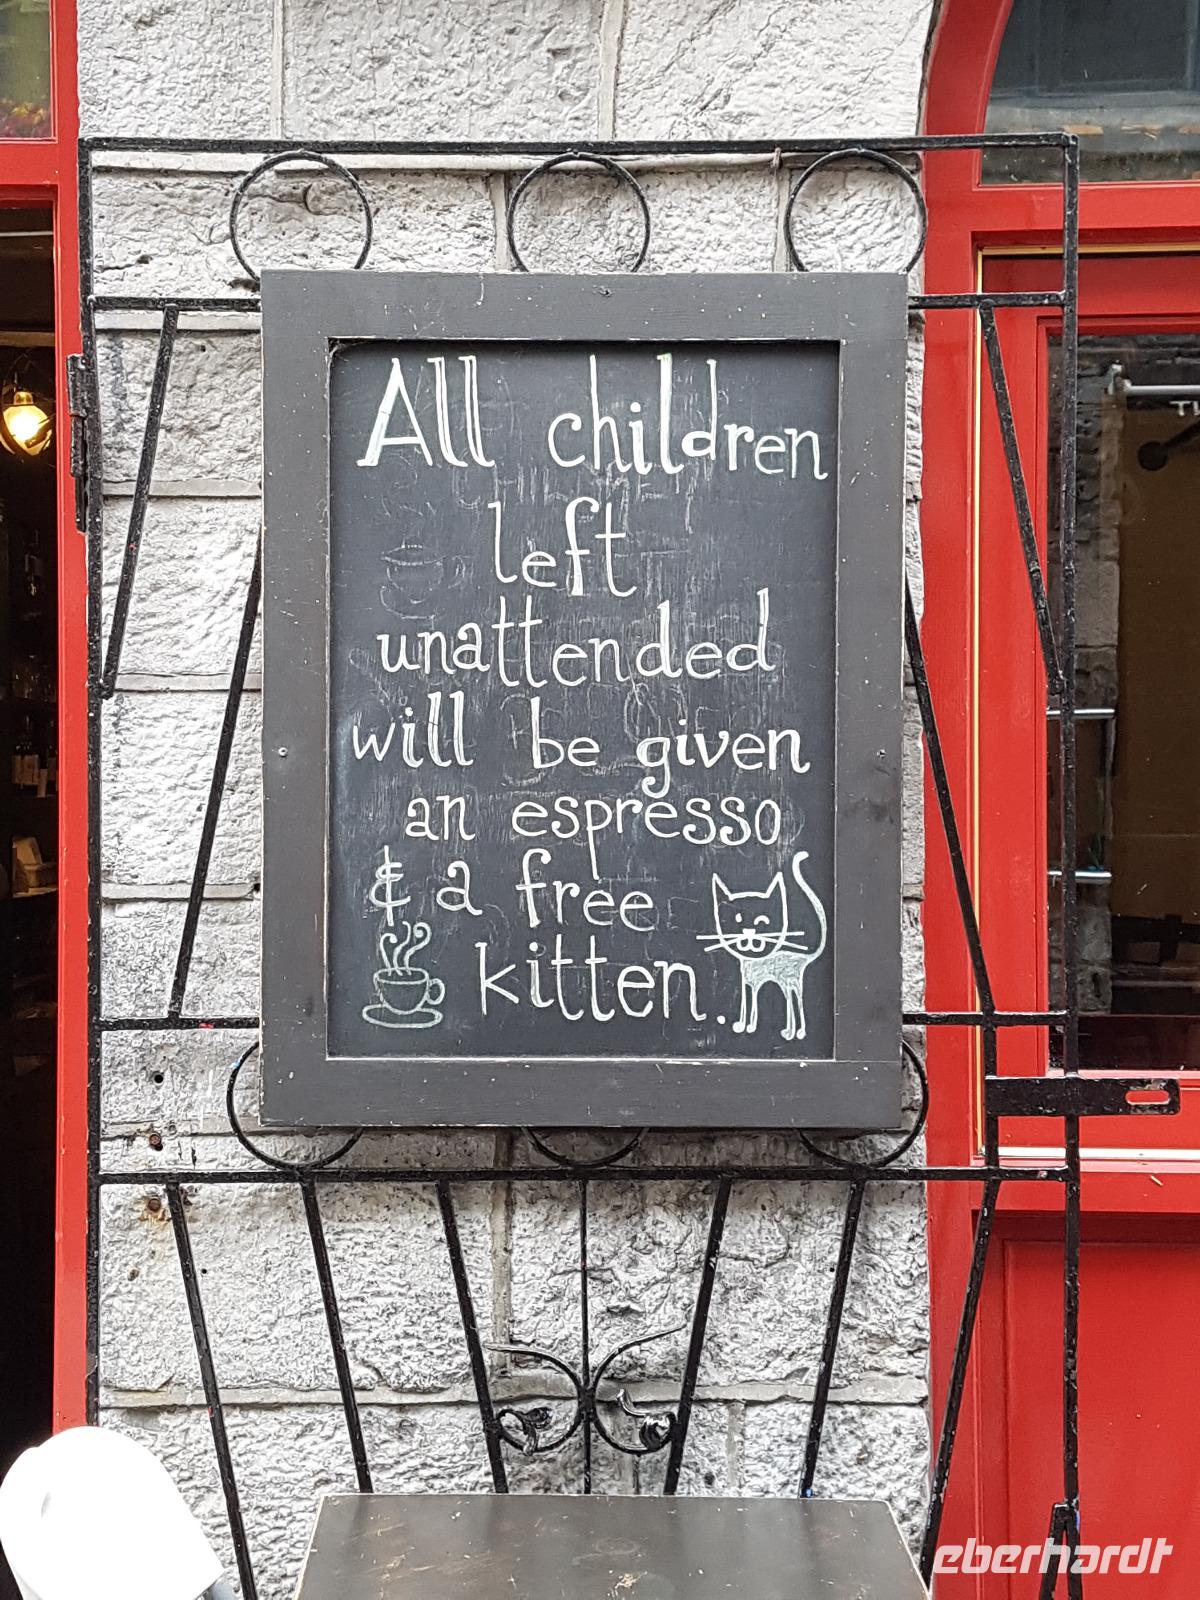 All children
left
unattended
will be given
an espresso
& a free
kitten.
eberhardt